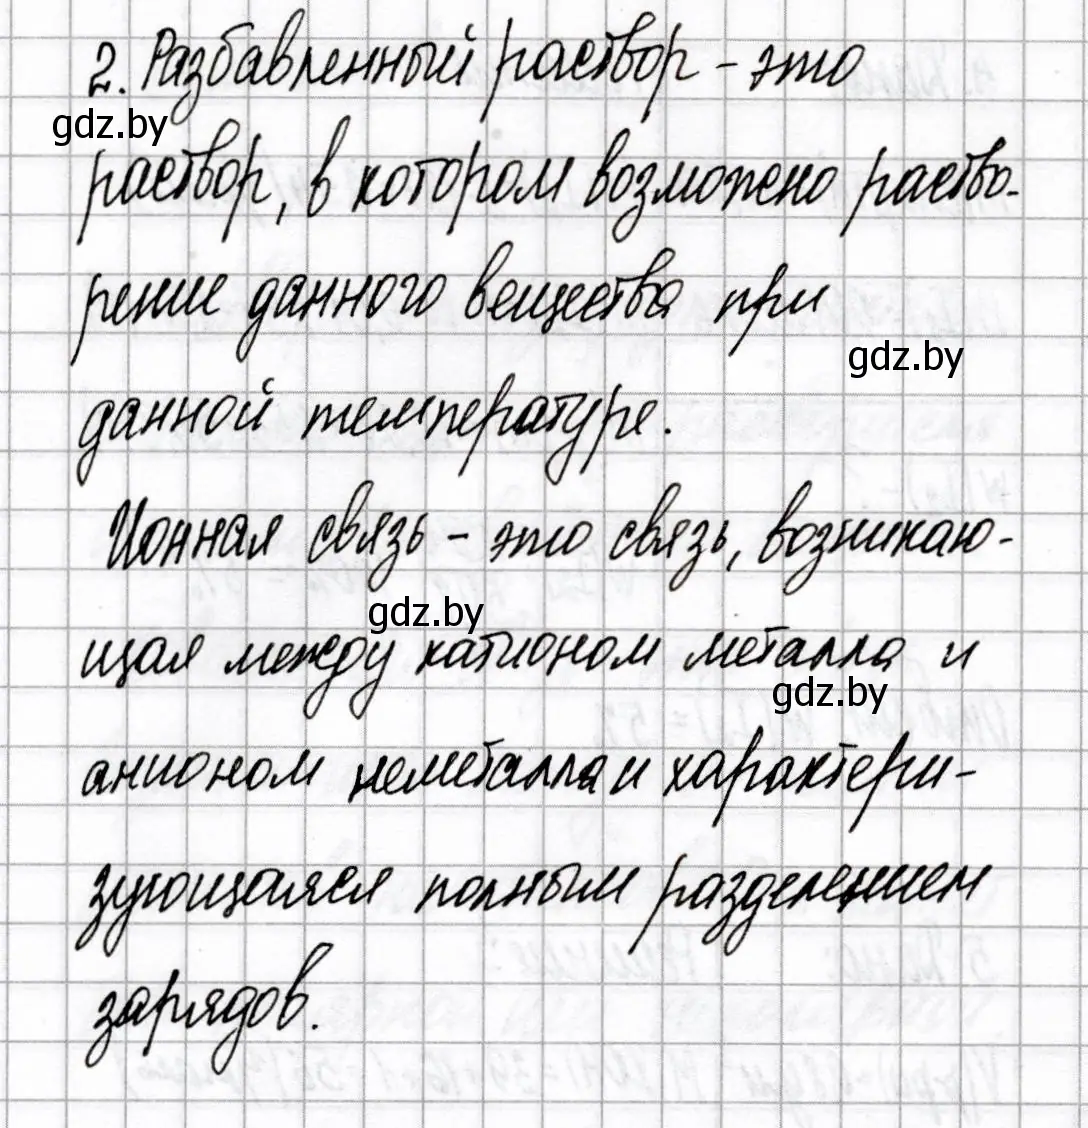 2. Разбавленный раствор - это
gdz.by
раствор, в котором возможно раство-
рение данного вещества при
gdz.by
данной температуре.
Ионная связь - это связь, возникаю-
gdz.by
щая между катионом металла и
gdz.by
анионом неметалла и характери-
зующаяся полным разделением
зарядов.